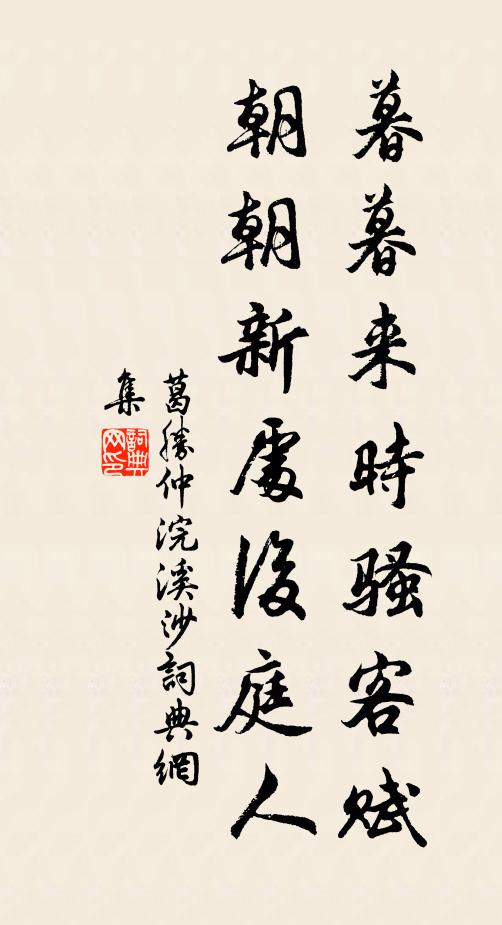 暮暮来時騷客赋
朝朝新處後庭人
葛勝仲浣溪沙詞典網
集
詞典网印